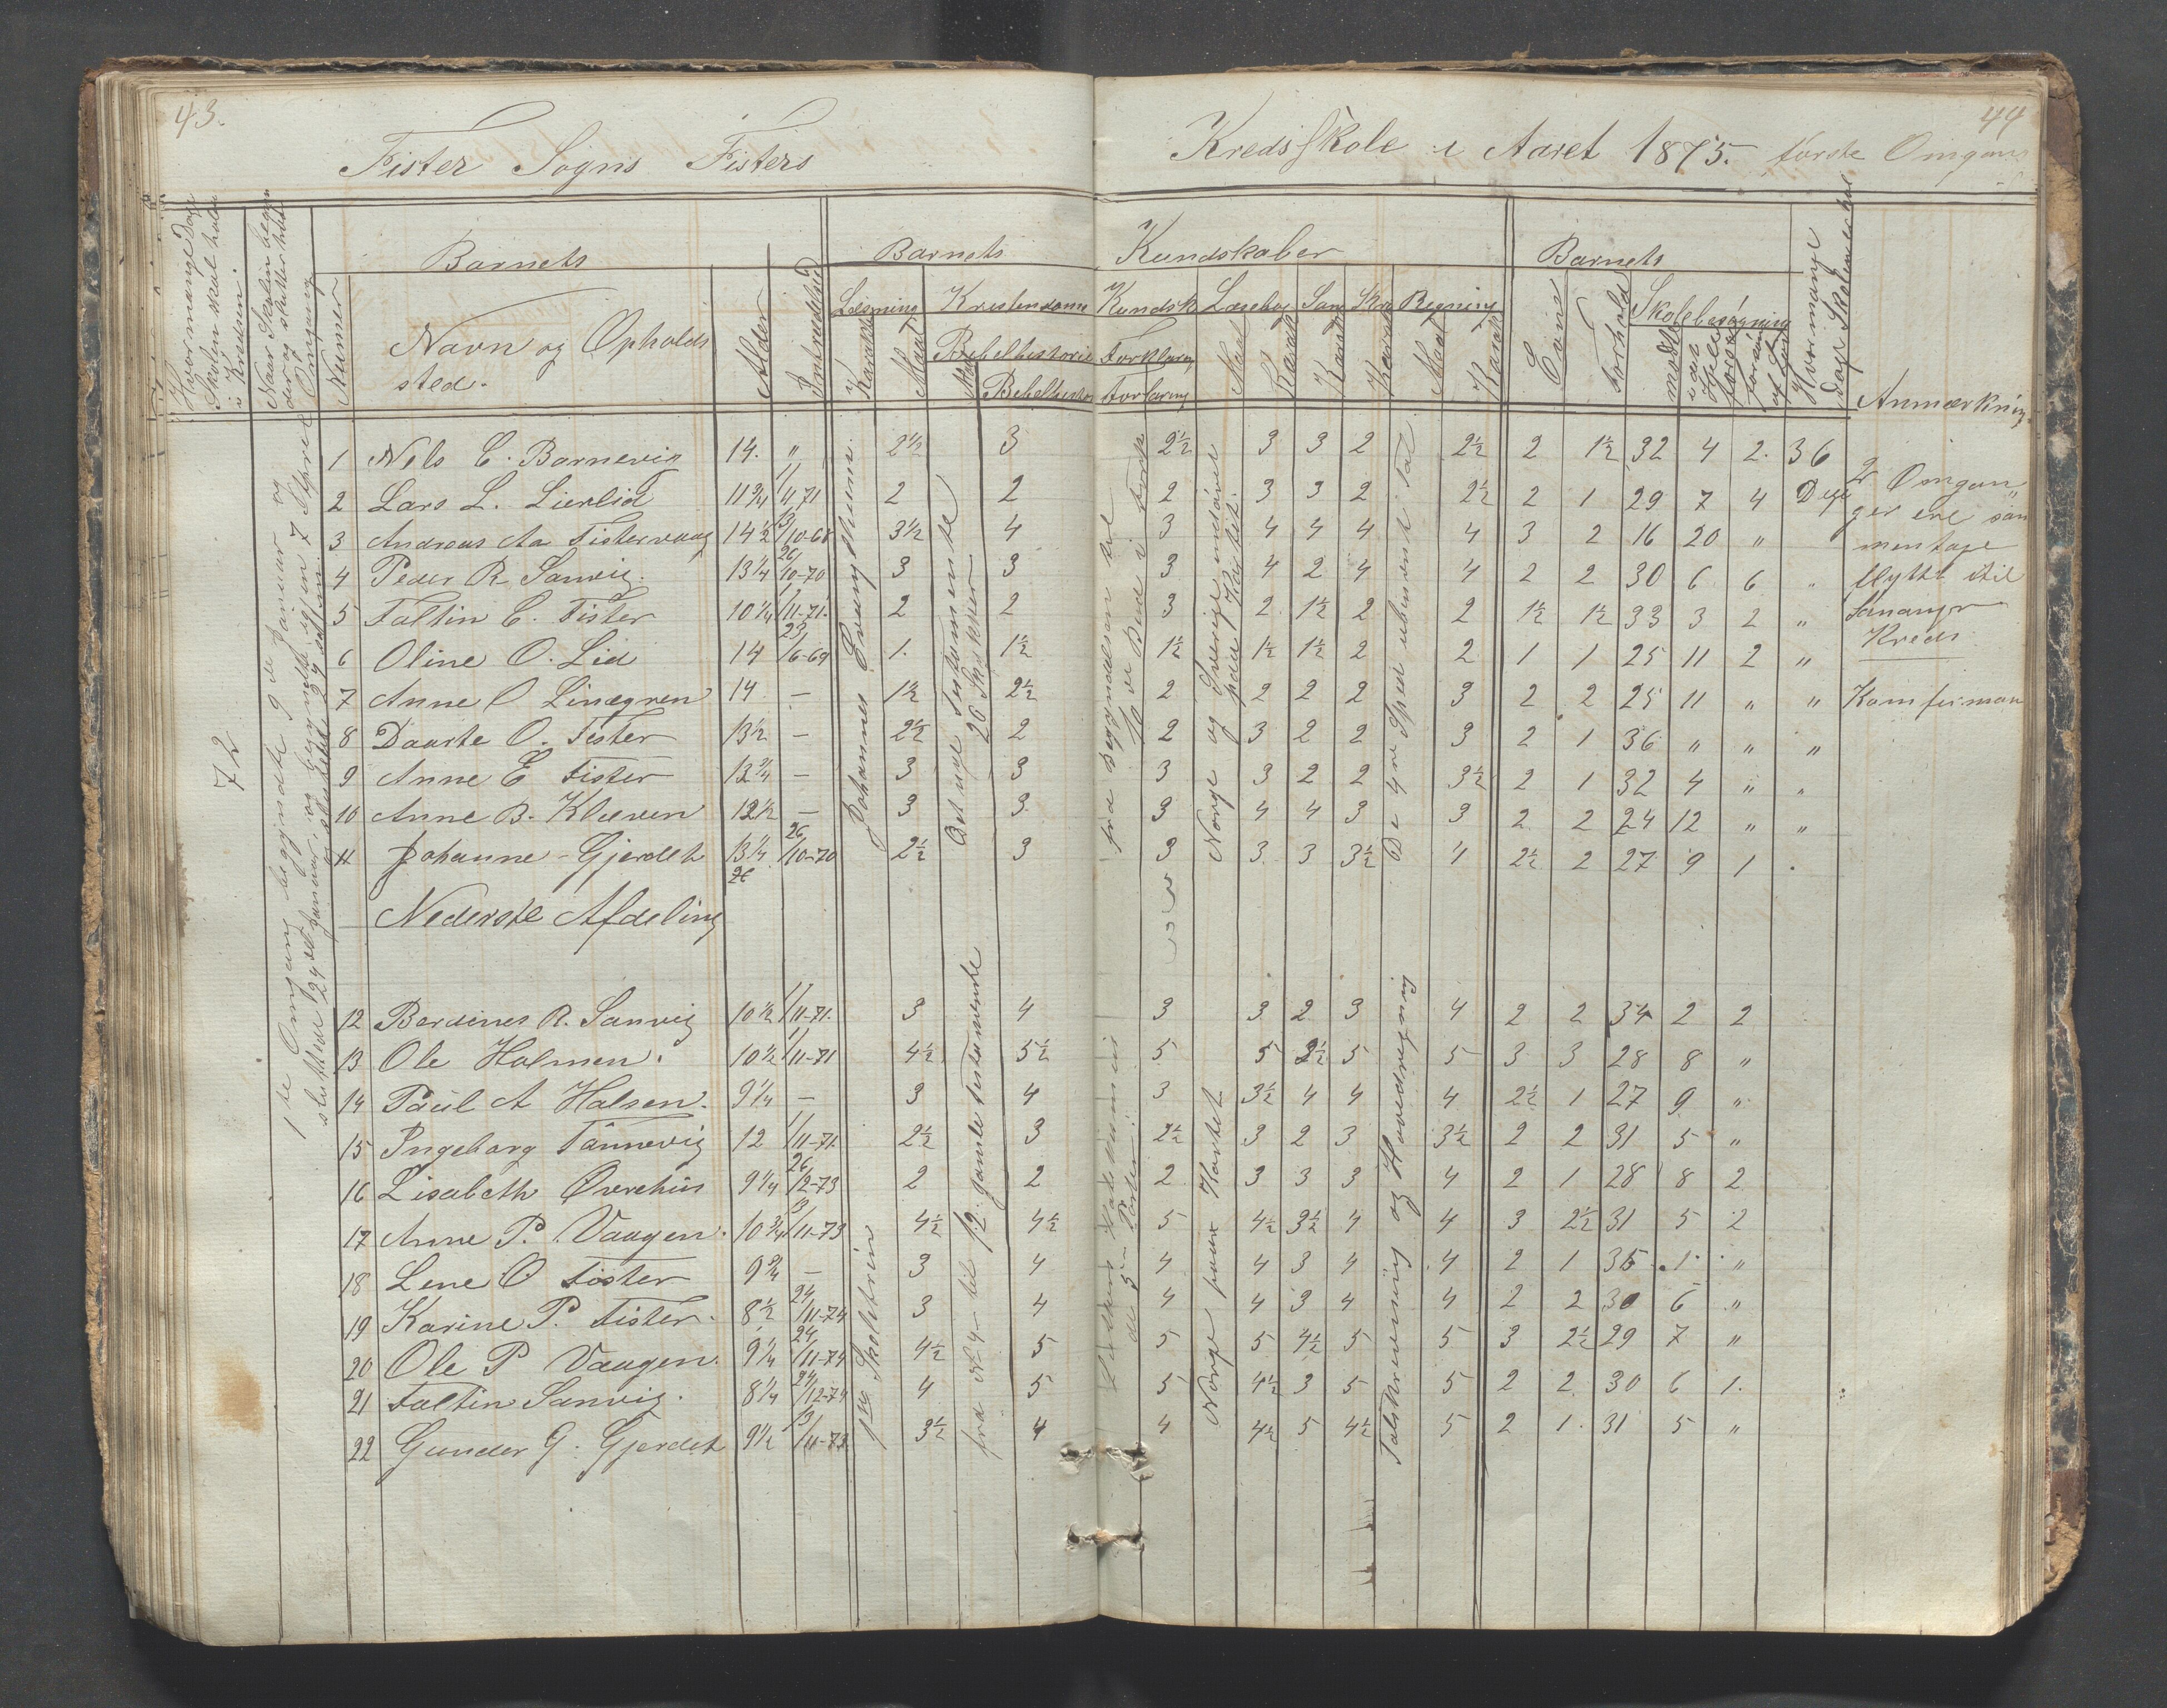 43.
44
Fister Sogns Fisters Kredsskole i Aaret 1875. første Omgang
Hvor mange Dage Skolen skal holdes i Kredsen.
Naar Skolen begynder og slutter hver Omgang
Numer
Barnets
Navn og Opholds
sted.
Alder
Indtrædelsestid
Barnets Kundskaber
Læsning
Kristendoms Kundsk
Læsebog
San
Skr
Regning
Karakt
Maal
Bibelhistorie
Forklaring
Barnets
Evne
Forhold
Skolebesøgning
mødt
i det Hele forsømt
Hvor mange Dage Skolen
Anmærkning
72
1 Nels E. Barnevig 14. " 2½ 3 2½ 3 3 2 2½ 2 1½ 32 4 2. 36
2 Lars L. Lierlid 11¾ 1/4 71 2 2 2 3 3 2 2½ 2 1 29 7 4 Dage
3 Andreas Aa Fistervaag 14½ 13/10-68 3½ 4 3 4 4 4 4 3 2 16 20 "
4 Peder R Sanvig. 13¼ 26/10-70 3 3 3 4 2 4 4 2 2 30 6 6 "
5 Faltin E. Fister 10¼ 1/11-71. 2 2 3 2 1½ 2 2 1½ 1½ 33 3 2 "
6 Oline O. Lid 14 23/6-69 1. 1½ 1½ 1½ 1½ 2 2 1 1 25 11 2 "
7 Anne O Lindgren 14 — 1½ 2½ 2 2 2 2 3 2 2 25 11 " "
8 Daarte O. Fister 13½ — 2½ 2 2 3 2 2 3 2 1 36 " " "
9 Anne E Fister 12¾ — 3 3 3 3 2 2 3½ 2 1 32 4 " "
10 Anne B. Kleven 12½ — 3 3 3 4 4 3 3 2 2 24 12 " "
11 Johanne Gjerdet 13¼ 26/10-70 2½ 3 3 3 3 3½ 4 2½ 2 27 9 1 .
Nederste Afdeling
12 Berdines R. Sanvig 10½ 1/11-71. 3 4 3 3 2 3 4 2 2 34 2 2
13 Ole Halmen. 10½ 1/11-71 4½ 5½ 5 5 2½ 5 5 3 3 28 8 "
14 Paul A Halsen. 9¼ — 3 4 3 3½ 4 4 4 2½ 1 27 9 "
15 Ingeborg Tannevig 12 1/11-71. 2½ 3 2½ 3 2 3 3½ 2 2 31 5 "
16 Lisabeth Øvrehus 9¼ 26/12-73 2 2 2 3 3 3 4 2 1 28 8 2
17 Anne P. Vaagen. 10¾ 13/11-73 4½ 4½ 5 4½ 3½ 4 4 3 2½ 31 5 2
18 Lene O Fister 9¾ — 3 4 4 4 3 4 4 2 1 35 1. "
19 Karine P. Fister. 8½ 24/11-74 3 4 4 4 3 4 4 2 2 30 6 "
20 Ole P Vaagen. 9¼ 24/11-74 4½ 5 5 5 4½ 5 5 3 2½ 29 7 "
21 Faltin Sanvig. 8¼ 24/12-74 4 5 5 4½ 3 5 5 2 2 30 6 1.
22 Gunder G. Gjerdet 9½ 13/11-73 3½ 4 4 4½ 5 4½ 5 2 1. 31 5 "
1 de Omgang begyndte 9 de Januar og
sluttede 29 de Januar, og begyndte igjen 7 April
Johannes Evangelium.
Det nye Testamente
26 Stykker
fra Begyndelsen til
Norge og Sverige
paa Kartet.
De 4re Sped ubenævnt Tal
fra № 4 — til 12. gamle Testamente
Norge paa Kartet
Talskrivning og Hovedregning
2 Omgan
ger ere sam
mentage
flytte til
Kreds.
Komfirman